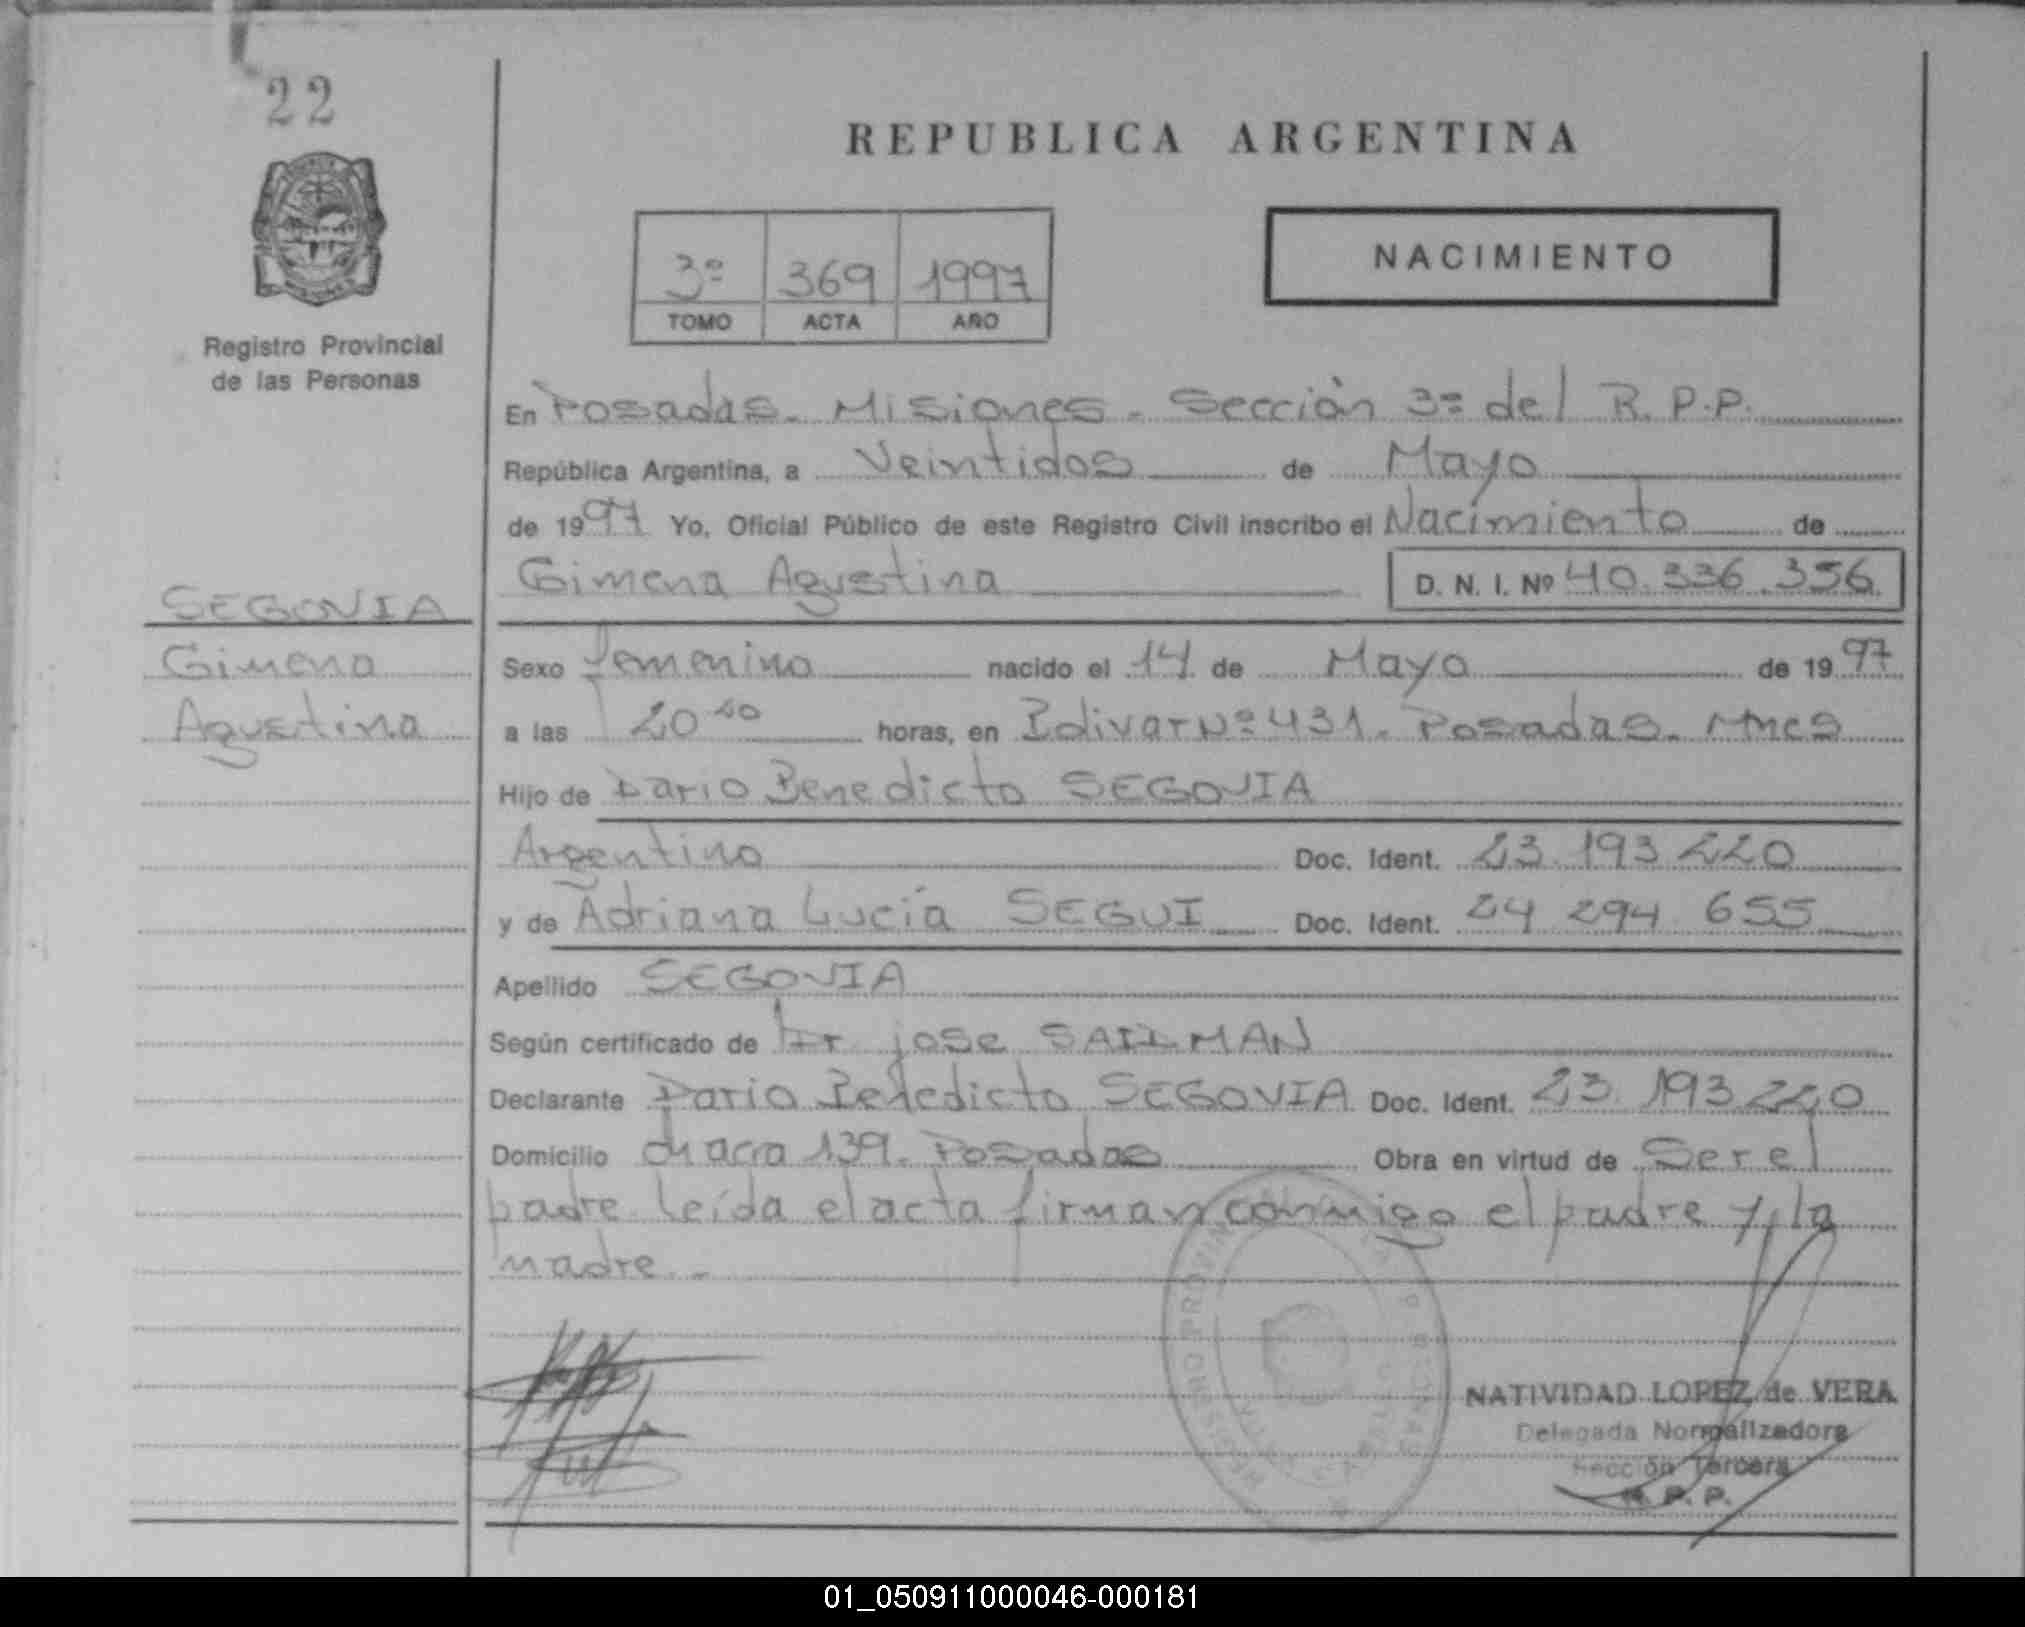 22
REPUBLICA ARGENTINA
NACIMIENTO
3º 369 1997
TOMO ACTA AÑO
Registro Provincial
de las Personas
En Posadas. Misiones. Sección 3ª del R. P. P.
República Argentina, a Veintidos de Mayo
de 1997 Yo, Oficial Público de este Registro Civil inscribo el Nacimiento de
Gimena Agustina D. N. I. Nº 40.336.356
SEGOVIA
Gimena
Agustina
Sexo femenino nacido el 14 de Mayo de 1997
a las 20 horas, en Bolivar Nº 431. Posadas. Mnes
Hijo de Dario Benedicto SEGOVIA
Argentino Doc. Ident. 23 193 220
y de Adriana Lucía SEGUI Doc. Ident. 24 294 655
Apellido SEGOVIA
Según certificado de Dr jose
Declarante Dario Benedicto SEGOVIA Doc. Ident. 23. 193 220
Domicilio chacra 139. Posadas Obra en virtud de Ser el
padre. Leída el acta firman conmigo el padre y la
madre.-
NATIVIDAD LOPEZ de VERA
Delegada Normalizadora
Sección Tercera
R. P. P.
01_050911000046-000181